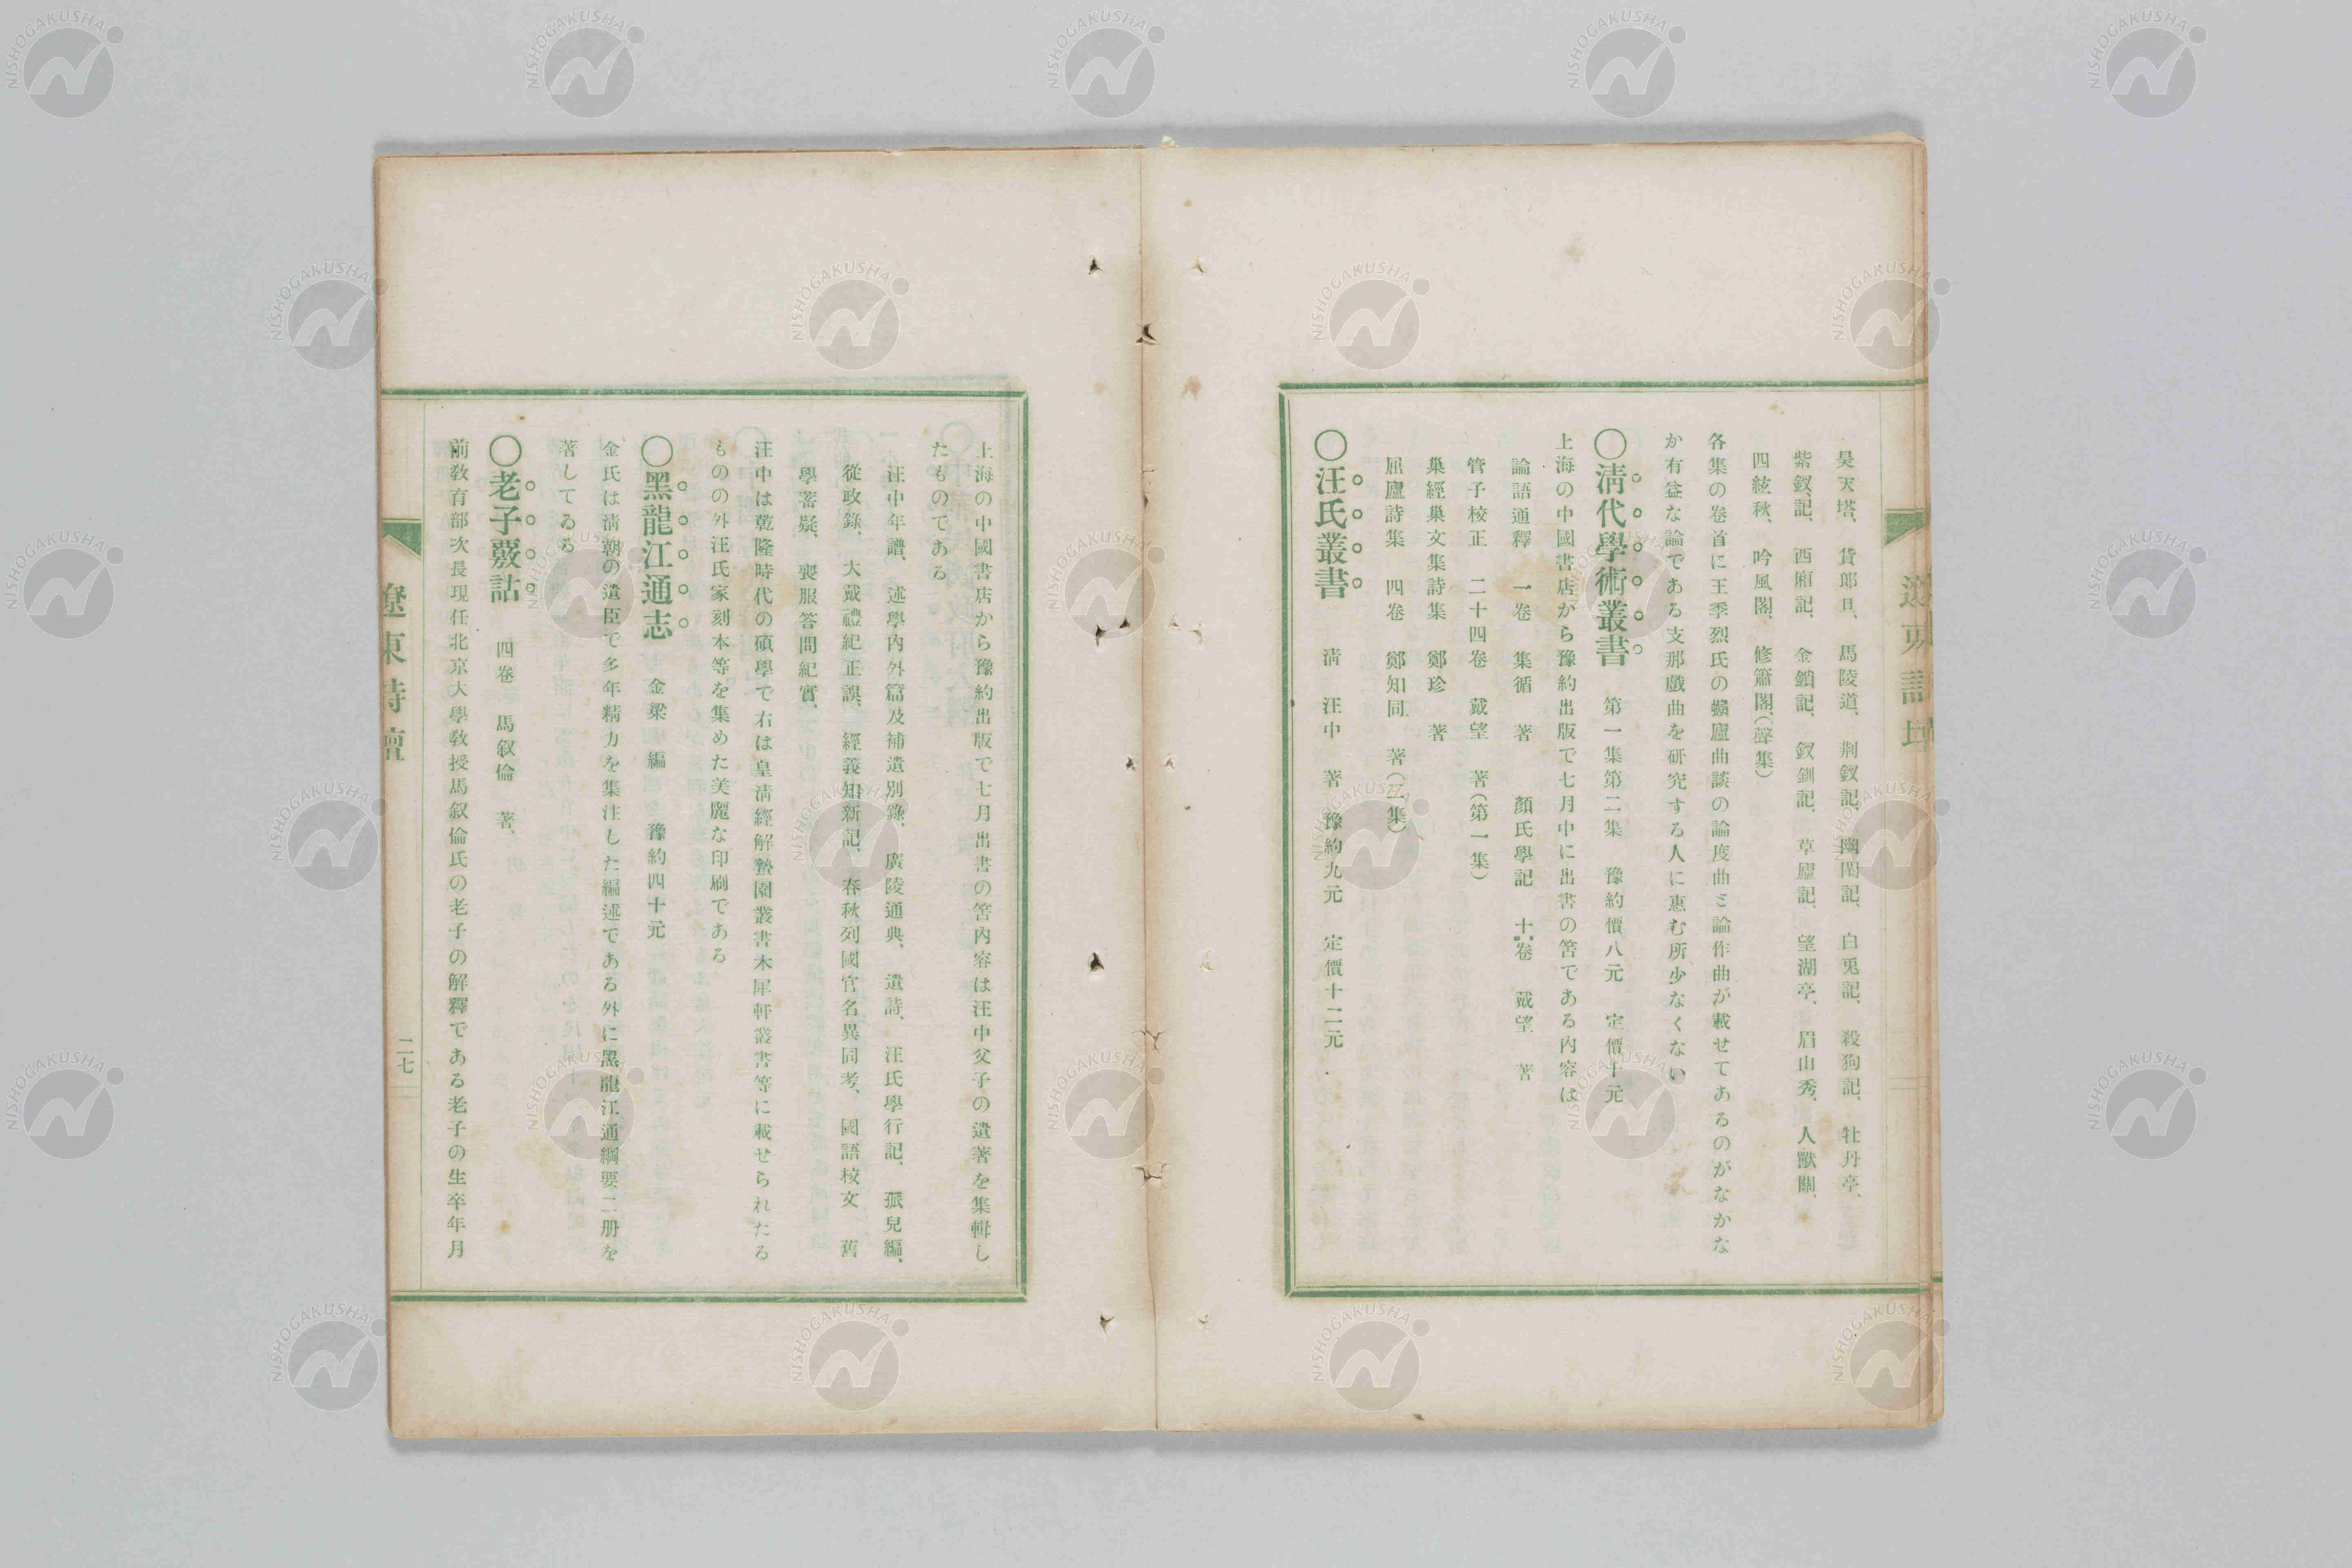 昊天塔、 貨郎旦、 馬陵道、 荆釵記、 幽閨記、 白兎記、 殺狗記、 牡丹亭、
紫釵記、 西廂記、 金鎖記、 釵釧記、 草廬記、 望湖亭、 眉山秀、 人獸關、
四絃秋、 吟風閣、 修簫閣、(聲集)
各集の卷首に王季烈氏の螾廬曲談の論度曲ミ論作曲が載せてあるのがなかな
か有益な論である支那戲曲を研究する人に惠む所少なくない
〇清代學術叢書 第一集第二集 豫約價八元 定價十元
上海の中國書店から豫約出版で七月中に出書の筈である內容は
論語通釋 一卷 集循 著 顏氏學記 十卷 戴望 著
管子校正 二十四卷 戴望 著(第一集)
巢經巢文集詩集 鄭珍 著
屈廬詩集 四卷 鄭知同 著(二集)
〇汪氏叢書 淸 汪中 著 豫約九元 定價十二元
遼東詩壇
上海の中國書店から豫約出版で七月出書の筈內容は汪中父子の遺著を集輯し
たものである
汪中年譜、 述學內外篇及補遺別錄、 廣陵通典、 遺詩、 汪氏學行記、 孤兒編、
從政錄、 大戴禮紀正誤、 經義知新記、 春秋列國官名異同考、 國語校文 舊
學蓄疑、 喪服答問紀實、
汪中は乾隆時代の碩學で右は皇淸經解蟄園叢書木犀軒叢書等に載せられたる
ものの外汪氏家刻本等を集めた美麗な印刷である
〇黑龍江通志 金梁 編 豫約四十元
金氏は淸朝の遺臣で多年精力を集注した編述である外に黑龍江通綱要二册を
著してゐる
〇老子覈詁 四卷 馬叙倫 著、
前敎育部次長現任北京大學敎授馬叙倫氏の老子の解釋である老子の生卒年月
遼東詩壇
二七